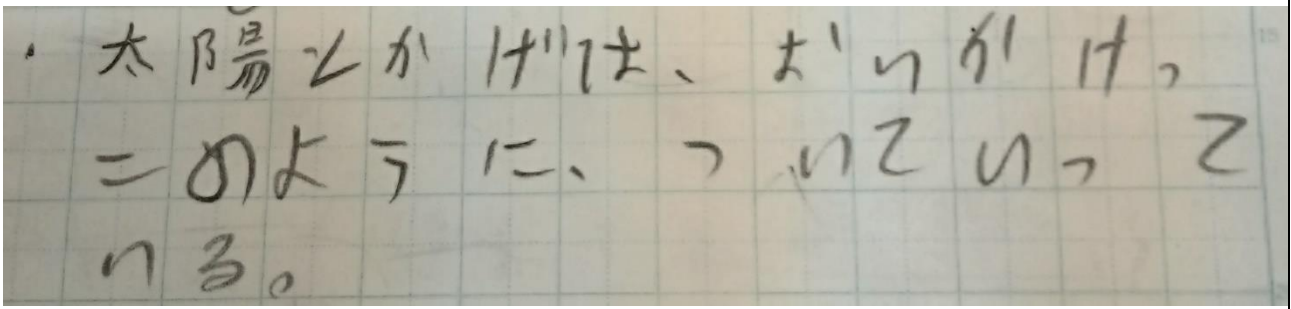 ・太陽とかげは、おいかけっ
このように、ついていって
いる。